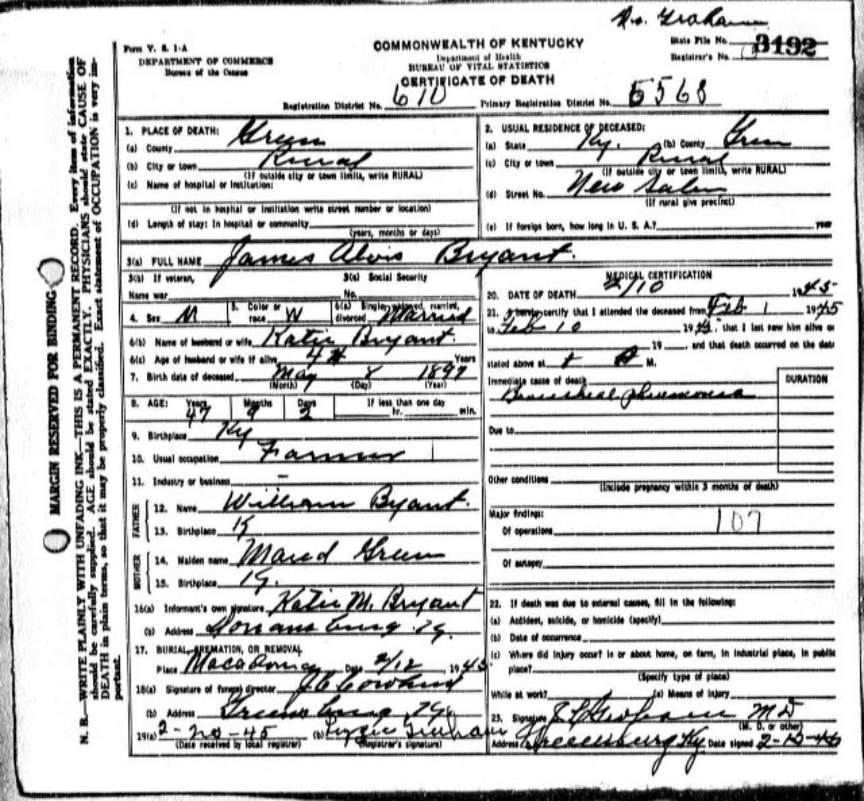 Graham
Form V. S. 1-A
DEPARTMENT OF COMMERCE
Bureau of the Census
COMMONWEALTH OF KENTUCKY
Department of Health
BUREAU OF VITAL STATISTICS
CERTIFICATE OF DEATH
State File No. 3192
Registrar's No.
Registration District No. 610 Primary Registration District No. 5568
MARGIN RESERVED FOR BINDING
N. B.—WRITE PLAINLY WITH UNFADING INK—THIS IS A PERMANENT RECORD. Every item of information
should be carefully supplied. AGE should be stated EXACTLY. PHYSICIANS should state CAUSE OF
DEATH in plain terms, so that it may be properly classified. Exact statement of OCCUPATION is very im-
portant.
1. PLACE OF DEATH:
(a) County Green
(b) City or town Rural
(If outside city or town limits, write RURAL)
(c) Name of hospital or institution:
(If not in hospital or institution write street number or location)
(d) Length of stay: In hospital or community
(years, months or days)
2. USUAL RESIDENCE OF DECEASED:
(a) State Ky. (b) County Green
(c) City or town Rural
(If outside city or town limits, write RURAL)
(d) Street No. New Salem
(If rural give precinct)
(e) If foreign born, how long in U. S. A.? year
3(a) FULL NAME James Alvis Bryant.
3(b) If veteran, 3(c) Social Security
Name war No.
4. Sex M 5. Color or race W 6(a) Single, widowed, married, divorced Married
6(b) Name of husband or wife Katie Bryant.
6(c) Age of husband or wife if alive Years
7. Birth date of deceased May 8 1897
(Month) (Day) (Year)
8. AGE: Years Months Days If less than one day
47 9 2 hr. min.
9. Birthplace Ky
10. Usual occupation Farmer
11. Industry or business –
FATHER
12. Name William Bryant.
13. Birthplace K
MOTHER
14. Maiden name Green
15. Birthplace
16(a) Informant's own signature Katie M. Bryant
(a) Address
17. BURIAL, CREMATION, OR REMOVAL
Place Date 2/12 1945
18(a) Signature of funeral director
(b) Address Greensburg Ky.
19(a) 2-20-45 (b) Graham
(Date received by local registrar) (Registrar's signature)
MEDICAL CERTIFICATION
20. DATE OF DEATH 2/10 1945
21. I hereby certify that I attended the deceased from Feb 1 1945
to Feb 10 1945, that I last saw him alive on
19 , and that death occurred on the date
stated above at M.
Immediate cause of death DURATION
Bronchial pneumonia
Due to
Other conditions
(Include pregnancy within 3 months of death)
Major findings: 107
Of operations
Of autopsy
22. If death was due to external causes, fill in the following:
(a) Accident, suicide, or homicide (specify)
(b) Date of occurrence
(c) Where did injury occur? In or about home, on farm, in industrial place, in public
place?
(Specify type of place)
While at work? (a) Means of injury
23. Signature Graham MD
(M. D. or other)
Address Greensburg Ky Date signed